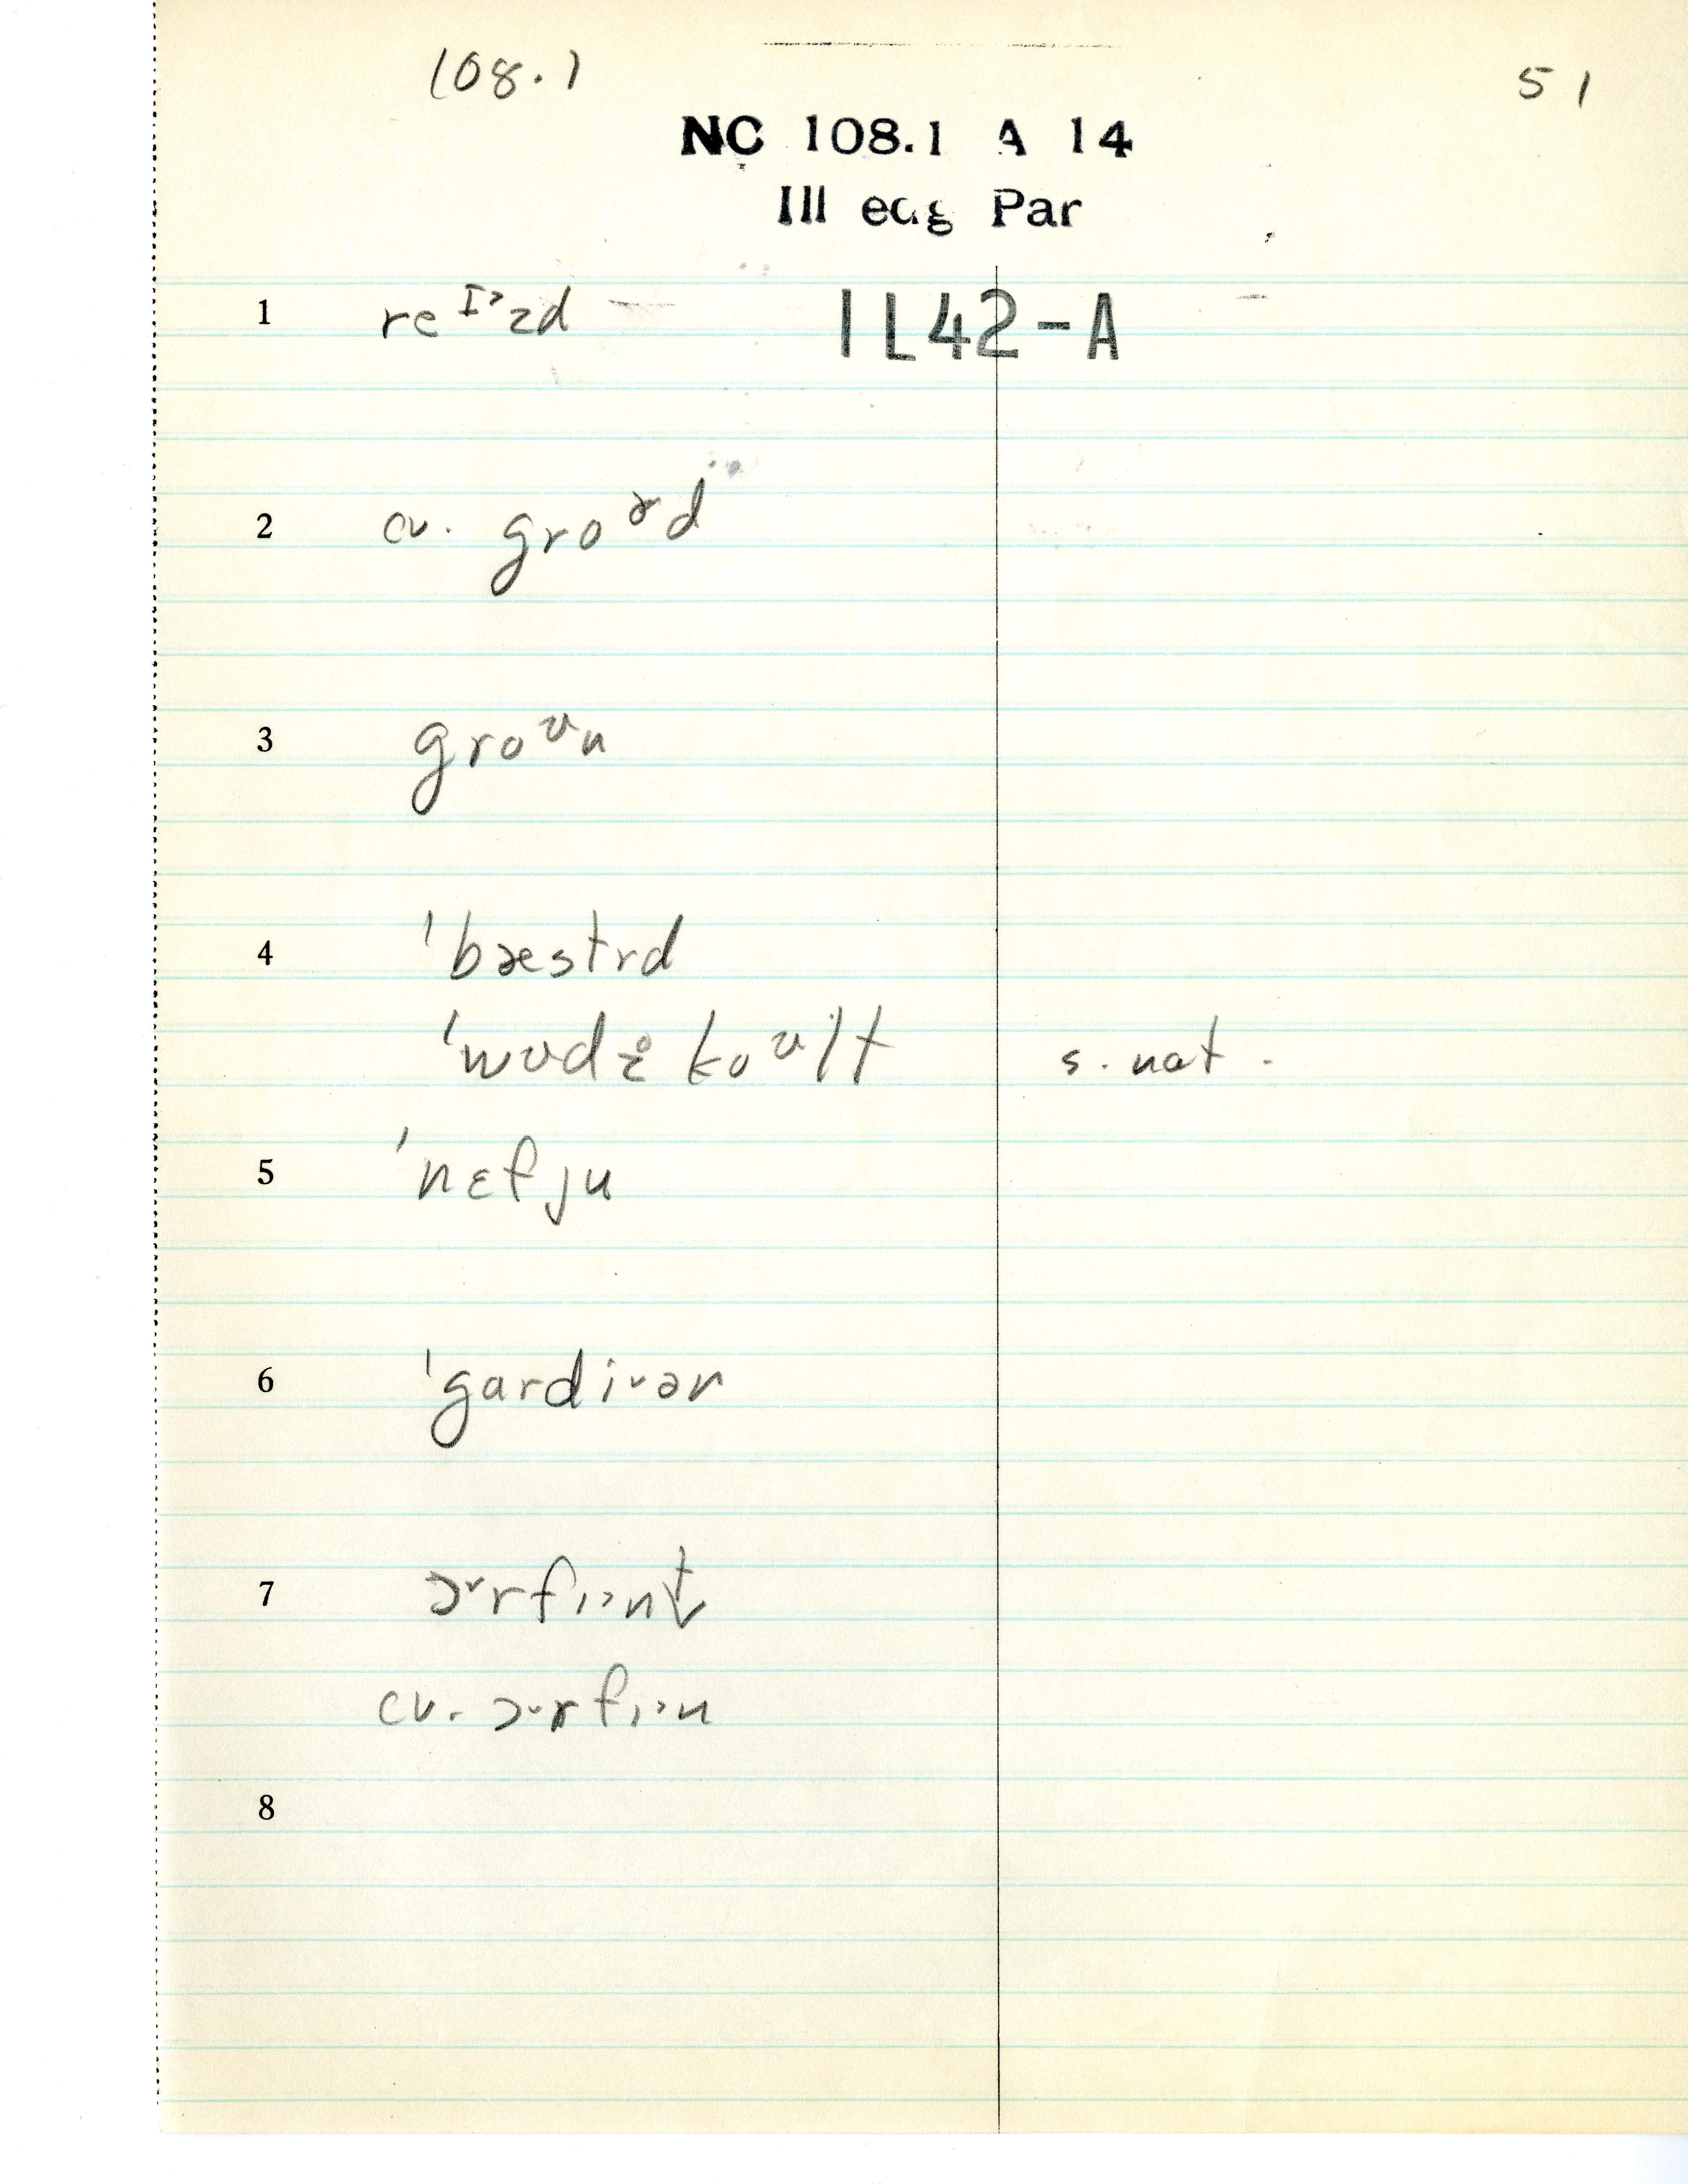 108.1 51
NC 108.1 A 14
Ill edg Par
1 reᶦ˃zd IL42-A
2 cv. groᵊd
3 groᶷn
4 ˈbæstrd
ˈwʊdz̥ koᶷlt s. nat.
5 ˈnɛfju
6 ˈgardi˅ən
7 ɔ˅rfɪ˃nt
cv. ɔ˅rfɪ˃n
8